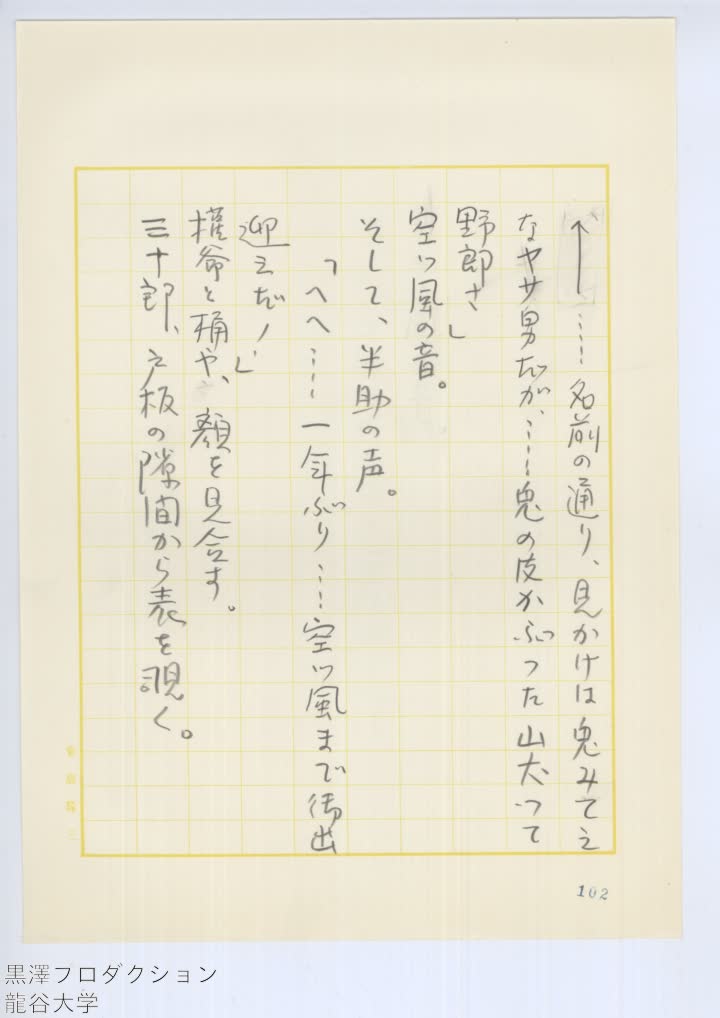 ↑……名前の通り、見かけは鬼みてえ
なヤサ男だが、……鬼の皮かぶった山犬って
野郎さ」
空ッ風の音。
そして、半助の声。
「へへ……一年ぶり……空ッ風まで御出
迎えだ!」
権爺と桶や、顔を見合す。
三十郎、戸板の隙間から表を覗く。
102
黒澤プロダクション
龍谷大学